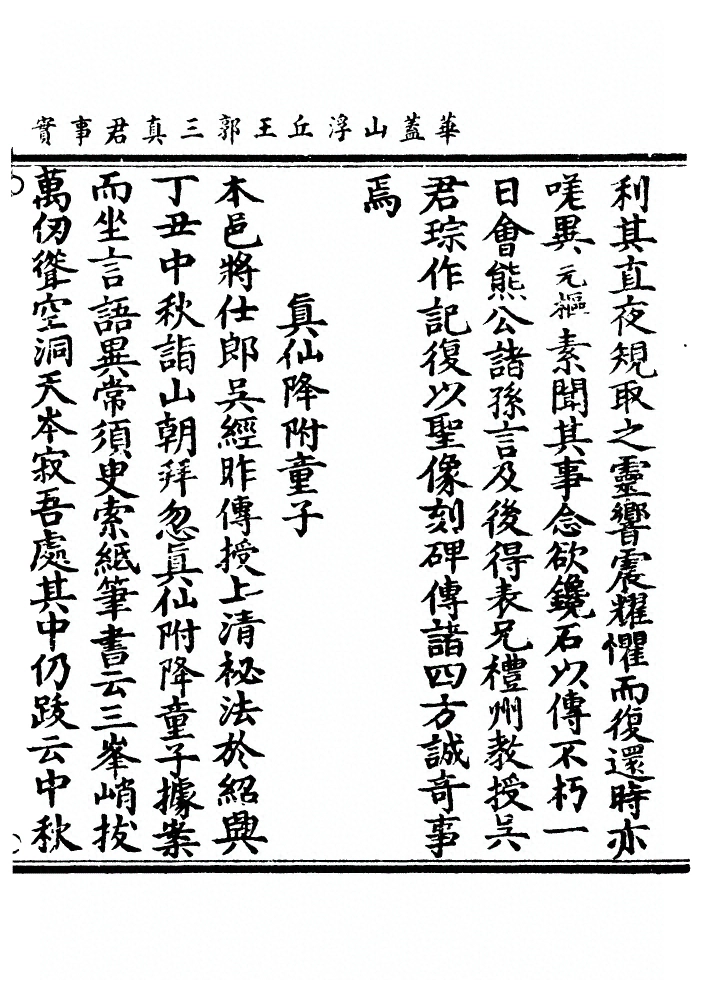 華蓋山浮丘王郭三真君事實
利其直夜規取之靈響震耀懼而復還時亦
嗟異元樞素聞其事念欲鑱石以傳不朽一
日會熊公諸孫言及後得表兄禮州教授吳
君琮作記復以聖像刻碑傳諸四方誠奇事
焉
眞仙降附童子
本邑將仕郎吳經昨傳授上清祕法於紹興
丁丑中秋詣山朝拜忽眞仙附降童子據案
而坐言語異常須臾索紙筆書云三峯峭拔
萬仭聳空洞天岑寂吾處其中仍跋云中秋